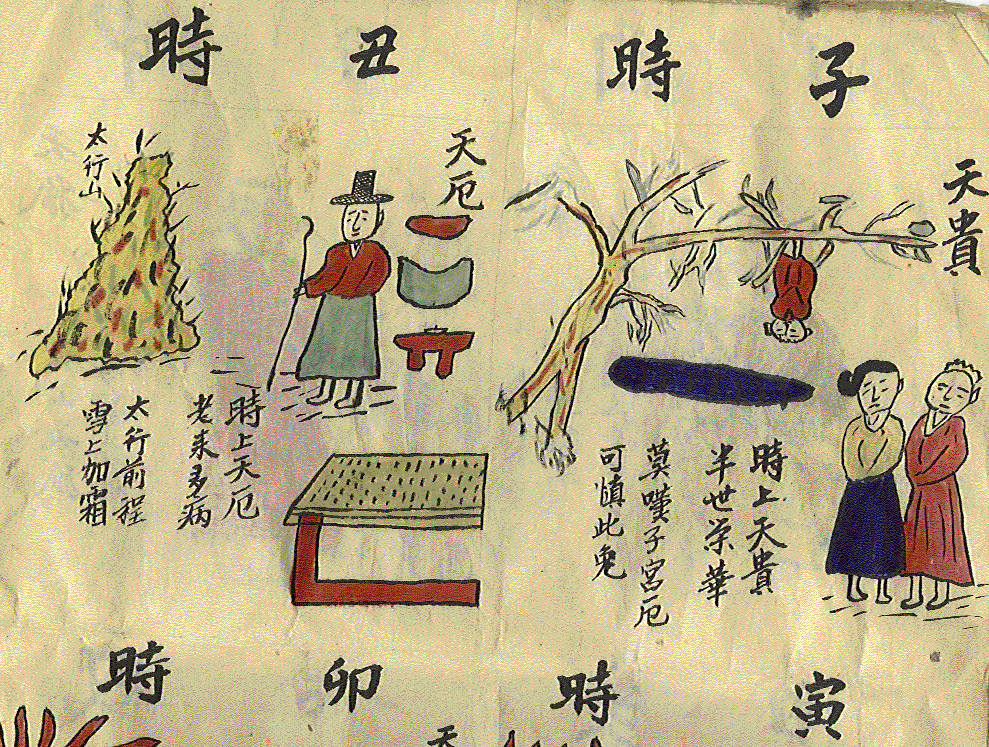 子時
天貴
時上天貴
半世荣華
莫嘆子宮厄
可慎此兔
丑時
天厄
太行山
時上天厄
老来多病
太行前程
雪上加霜
寅時
卯時
天